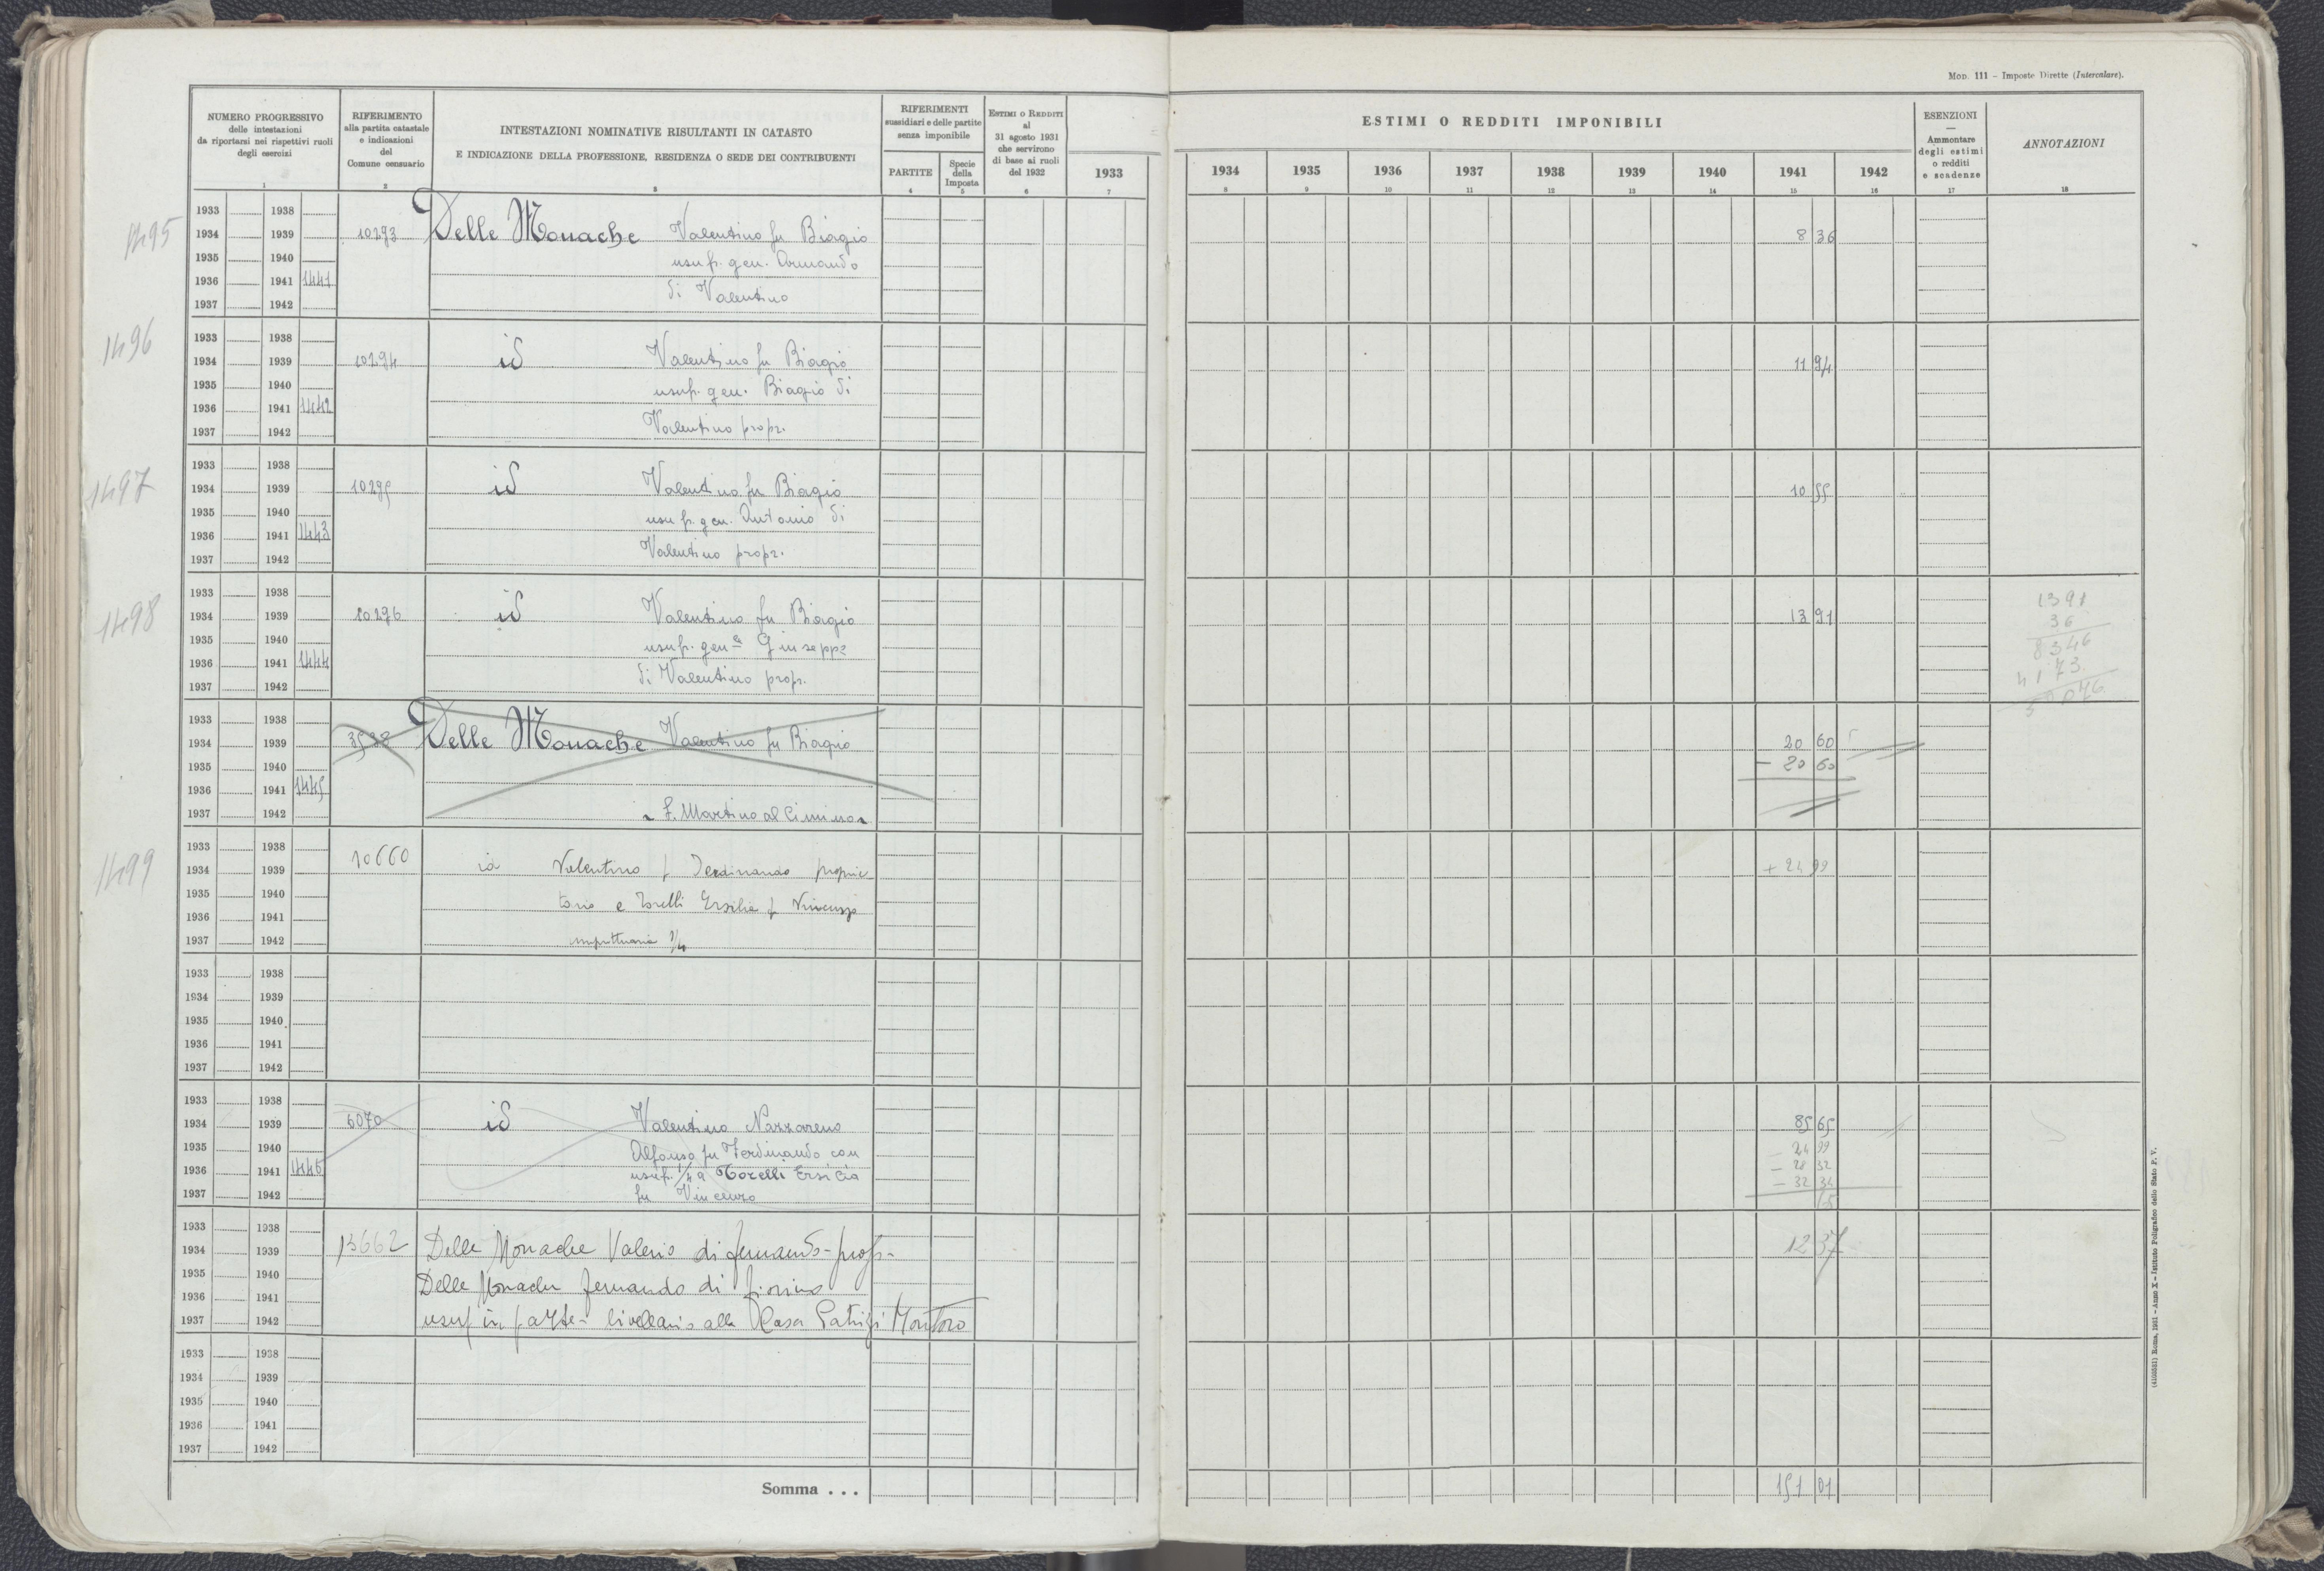 Mod. 111 - Imposte Dirette (Intercalare).
NUMERO PROGRESSIVO
delle intestazioni
da riportarsi nei rispettivi ruoli
degli esercizi
1
RIFERIMENTO
alla partita catastale
e indicazioni
del
Comune censuario
2
INTESTAZIONI NOMINATIVE RISULTANTI IN CATASTO
E INDICAZIONE DELLA PROFESSIONE, RESIDENZA O SEDE DEI CONTRIBUENTI
3
RIFERIMENTI
sussidiari e delle partite
senza imponibile
PARTITE
4
Specie
della
Imposta
5
Estimi o Redditi
al
31 agosto 1931
che servirono
di base ai ruoli
del 1932
6
1933
7
ESTIMI O REDDITI IMPONIBILI
1934 1935 1936 1937 1938 1939 1940 1941 1942
8 9 10 11 12 13 14 15 16
ESENZIONI
—
Ammontare
degli estimi
o redditi
e scadenze
17
ANNOTAZIONI
18
1495
1933 1938
1934 1939 10293 Delle Monache Valentino fu Biagio 8 36
1935 1940 usuf. gen. Armando
1936 1941 1441
1937 1942 di Valentino
1496
1933 1938
1934 1939 10294 id Valentino fu Biagio 11 94
1935 1940 usuf. gen. Biagio di
1936 1941 1442
1937 1942 Valentino propr.
1497
1933 1938
1934 1939 10295 id Valentino fu Biagio 10 55
1935 1940 usuf. gen. Antonio di
1936 1941 1443
1937 1942 Valentino propr.
1498
1933 1938
1934 1939 10296 id Valentino fu Biagio 13 91
1935 1940 usuf. gen. Giuseppe
1936 1941 1444
1937 1942 di Valentino propr.
1391
36
8346
4173
50076
1933 1938
1934 1939 Delle Monache Valentino fu Biagio 20 60
1935 1940 - 20 60
1936 1941 1445
1937 1942 S. Martino al Cimino
1499
1933 1938 10660
1934 1939 id Valentino f Ferdinando proprie + 24 99
1935 1940
1936 1941 tario e Torelli Ersilia f Vincenzo
1937 1942 usufruttuaria 1/4
1933 1938
1934 1939
1935 1940
1936 1941
1937 1942
1933 1938
1934 1939 6070 id Valentino Nazzareno 85 65
1935 1940 Alfonso fu Ferdinando con - 24 99
1936 1941 1446 usuf. 1/4 a Torelli Ersilia - 28 32
1937 1942 fu Vincenzo - 32 34
1933 1938
1934 1939 13662 Delle Monache Valerio di fernando - propr - 12 37
1935 1940 Delle Monache fernando di
1936 1941
1937 1942 usuf in parte - livellario alla Casa Patrizi Montoro
1933 1938
1934 1939
1935 1940
1936 1941
1937 1942
Somma . . . 151 01
(4103581) Roma, 1931 - Anno X - Istituto Poligrafico dello Stato P. V.